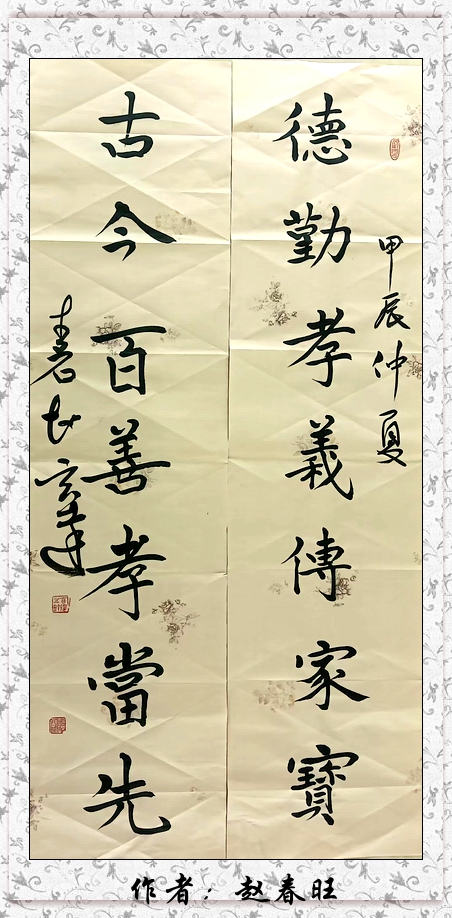 甲辰仲夏
德勤孝義傳家寶
古今百善孝當先
作者：赵春旺